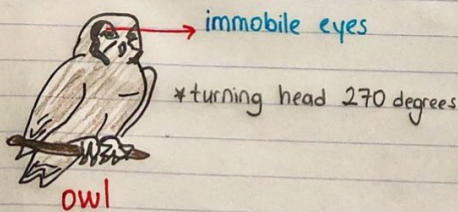 immobile eyes
*turning head 270 degrees
owl